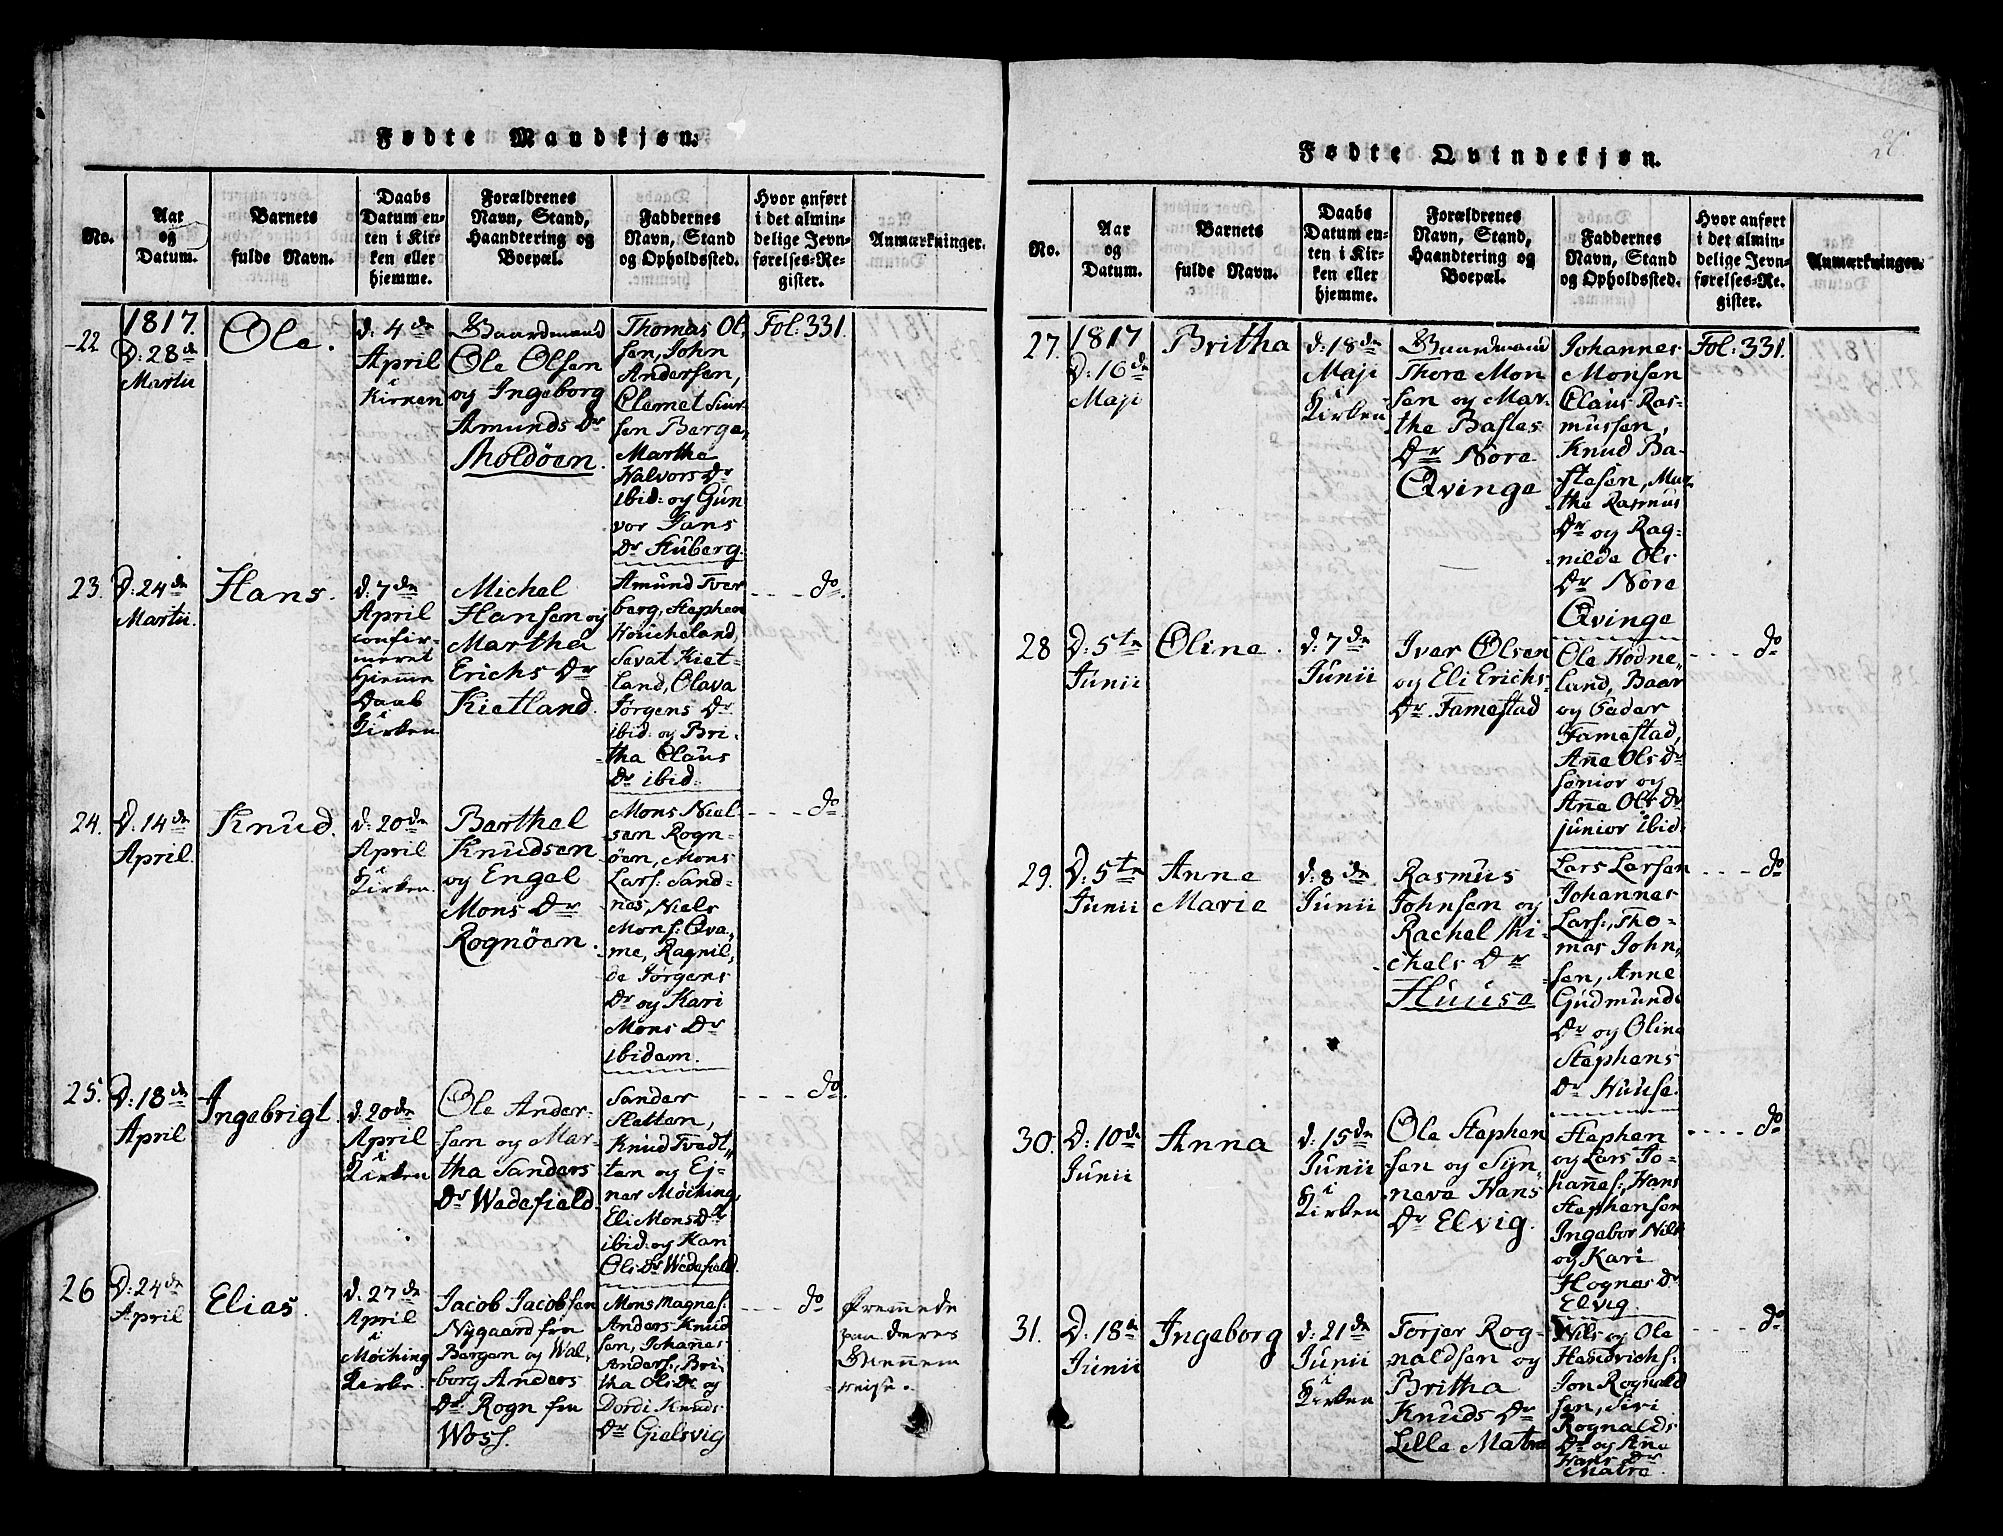 Fødte Mandkjøn.
No.
Aar
og
Datum.
Barnets
fulde Navn.
Daabs
Datum en-
ten i Kir-
ken eller
hjemme.
Forældrenes
Navn, Stand,
Haandtering og
Boepæl.
Faddernes
Navn, Stand
og Opholdssted.
Hvor anført
i det almin-
delige Jevn-
førelses-Re-
gister.
Anmærkninger.
22
1817.
D: 28de
Martii
Ole.
d: 4de
April
i
Kirken
Baardmand
Ole Olsen
og Ingeborg
Amunds Dr
Moldøen.
Thomas Ol,
sen, John
Andersen,
Clemet Siur-
sen Berge,
Martha
Halvors Dr
ibid: og Gun
vor Jans
Dr Stuberg.
Fol: 331.
23.
D: 24de
Martii
Hans.
d: 7de
April
confir-
meret
Hjemme
Daab
i
Kirken
Michel
Hansen og
Martha
Erichs Dr
Kietland.
Amund Tver
berg, Stephen
Houcheland,
Sevat Kiet-
land, Olava
Jørgens Dr
ibid: og Bri-
tha Claus
Dr ibid:
do.
24.
D: 14de
April.
Knud.
d: 20de
April
i
Kirken.
Barthel
Knudsen
og Engel
Mons Dr
Rognøen.
Mons Niel-
sen Rogn-
øen, Mons
Lars: Sand-
nes, Niels
Mons: Qva,
me, Ragnil,
de Jørgens
Dr og Kari
Mons Dr
ibidem.
do
25.
D: 18de
April
Ingebrigt.
d: 20de
April
i
Kirken
Ole Ander-
sen og Mar-
tha Sanders
Dr Wedefield.
Sander
Sletten,
Knud Tvedt,
ten og Ej-
ner Møching,
Eli Mons Dr
ibid: og Kari
Oli Dr Wedefield.
do.
26
D: 24de
April
Elias.
d: 27de
April
i
Møching
Kirke.
Jacob Jacobsen
Nygaard fra
Bergen og Wal-
borg Anders
Dr Rogn fra
Woss.
Mons Magnes:
Anders Knud
sen, Johannes
Anders:, Bri-
tha Oli Dr og
Dordi Knuds
Dr Gielsvig
do
Fremmede
paa deres
Giennem
reise.
Fødte Qvindekjøn.
26
No.
Aar
og
Datum.
Barnets
fulde Navn.
Daabs
Datum en-
ten i Kir-
ken eller
hjemme.
Forældrenes
Navn, Stand,
Haandtering og
Boepæl.
Faddernes
Navn, Stand
og Opholdssted.
Hvor anført
i det almin-
delige Jevn-
førelses-Re-
gister.
Anmærkninger.
27.
1817
D: 16de
Maji
Britha
d: 18de
Maji
i
Kirken
Baardmand
Thore Mon
sen og Mar-
tha Bastes
Dr Nore
Qvinge
Johannes
Monsen
Claus Ras-
mussen,
Knud Ba-
stesen, Mar
the Rasmus
Dr og Rag-
nilde Ols
Dr Nore
Qvinge
Fol: 331.
28
D: 5te
Junii
Oline.
d: 7de
Junii
Iver Olsen
og Eli Erichs-
Dr. Famestad
Ole Hodne,
land, Baar
og Peder
Famestad,
Anne Ols Dr
senior og
Anne Ols Dr
junior ibid:
do
29.
D: 5te
Junii
Anne
Marie
d: 8de
Junii
Rasmus
Johnsen og
Rachel Mi-
chels Dr
Huuse
Lars Larsen
Johannes
Lars:, Tho-
mas John,
sen, Anne
Gudmunds
Dr og Oline
Stephens
Dr Huuse.
do
30.
D: 10de
Junii
Anna
d: 15de
Junii
i
Kirken
Ole Stephen
sen og Syn-
neva Hans
Dr Elvig.
Stephen
og Lars Jo-
hannes:, Hans
Stephensen
Ingebor Nils
og Kari
Hognes Dr
Elvig.
do
31.
D: 18de
Junii
Ingeborg
d: 21de
Junii
i
Kirken
Torjer Rog-
naldsen og
Britha
Knuds Dr
Lille Matre
Nils og Ole
Hendrichs:
Jon Rognald
sen, Siri
Rognalds
Dr og Ane
Hans Dr
Matre.
do